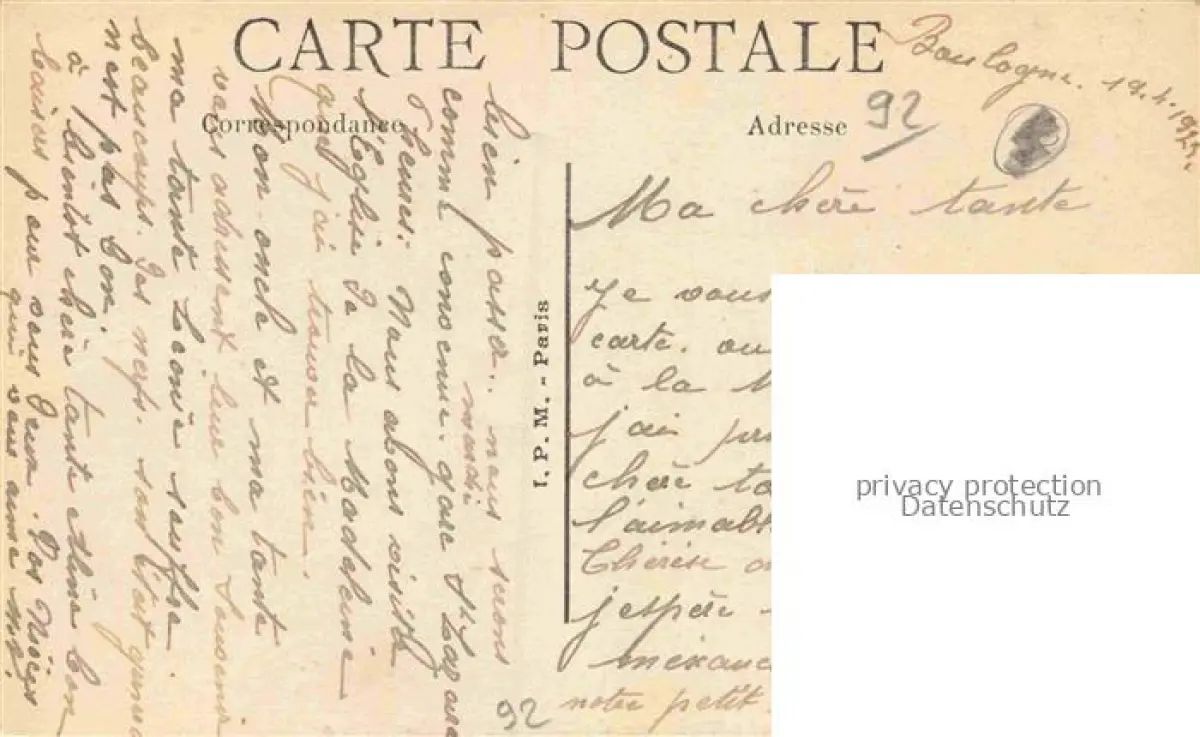 CARTE POSTALE
Correspondance
Adresse
92
Boulogne. 19.4.
I. P. M. - Paris
Ma chère tante
Je vous
carte. ou
à la
j'ai
chère ta
l'aimab
Thérèse
j'espère
notre petit
92
bien passer.. nous serons
mardi
comme convenue. gare St Lazare
7 heures. Nous avons visité
l'Eglise de la Madeleine
que j'ai trouver bien.
Mon oncle et ma tante
vous adressent leur bon Souvenir
ma tante Léonie souffre
beaucoups. Des nerfs. son état
n'est pas bon.
à bientôt chère tante bon
baisers pour vous Deux. Vos Nièces
qui vous aime
privacy protection
Datenschutz